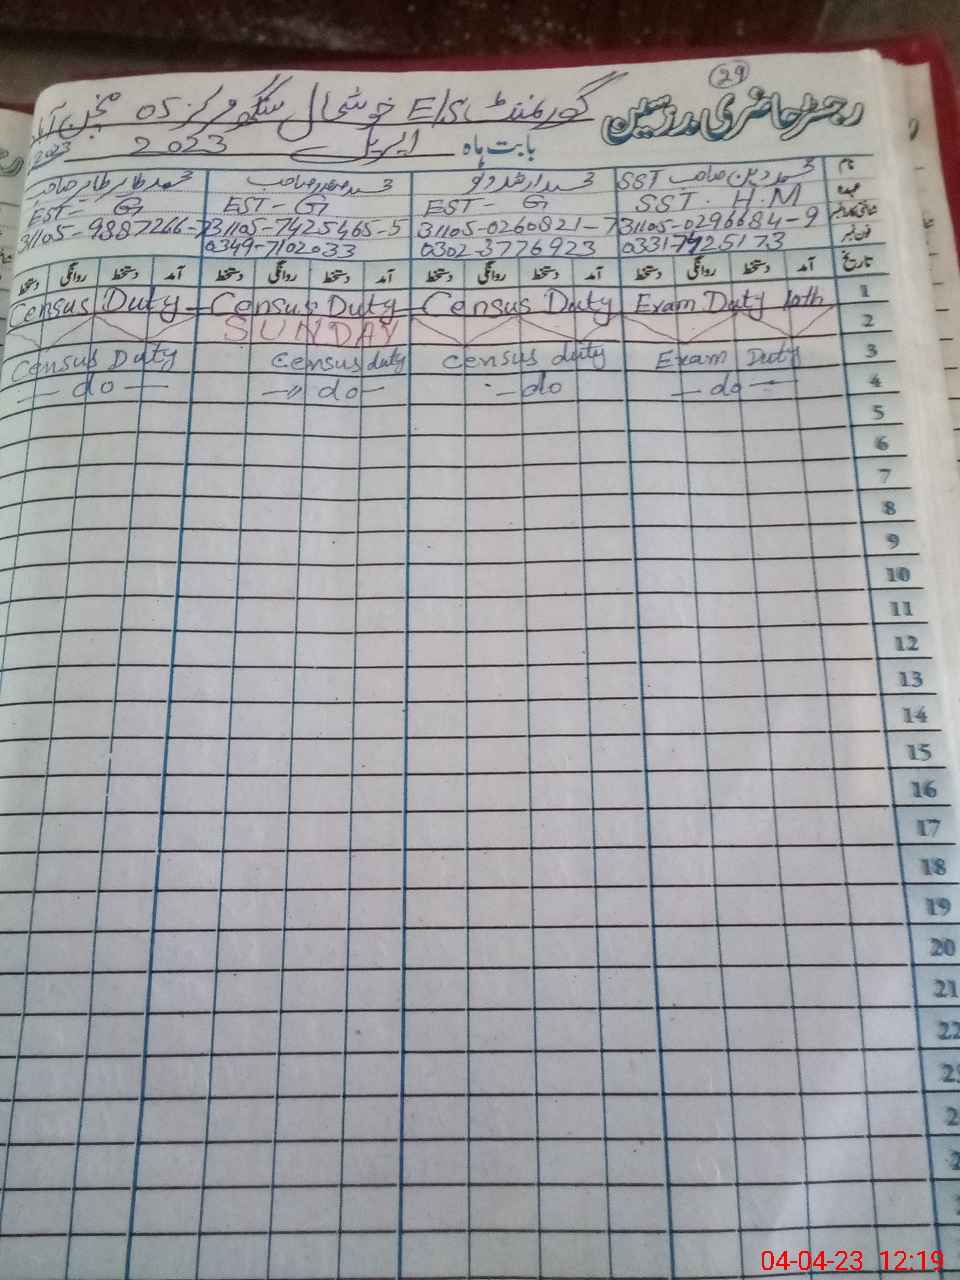 29
رجسٹر حاضری مدرسین
گورنمنٹ E/S خوشحال
05
بابت ماہ اپریل 2023
2023
نام
محمد دین صاحب SST
محمد طاہر صاحب
SST . H.M
EST - G
EST - G
EST - G
31105-0296684-9
31105-0260821-7
31105-7425465-5
31105-9887266-7
0331-7425173
0302-3776923
0349-7102033
تاریخ
آمد دستخط روانگی دستخط
آمد دستخط روانگی دستخط
آمد دستخط روانگی دستخط
آمد دستخط روانگی دستخط
Census Duty - Census Duty - Census Duty Exam Duty 10th 1
SUNDAY 2
Census Duty Census duty Census duty Exam Duty 3
- do - -"- do - - do - do - 4
5
6
7
8
9
10
11
12
13
14
15
16
17
18
19
20
21
22
04-04-23 12:19